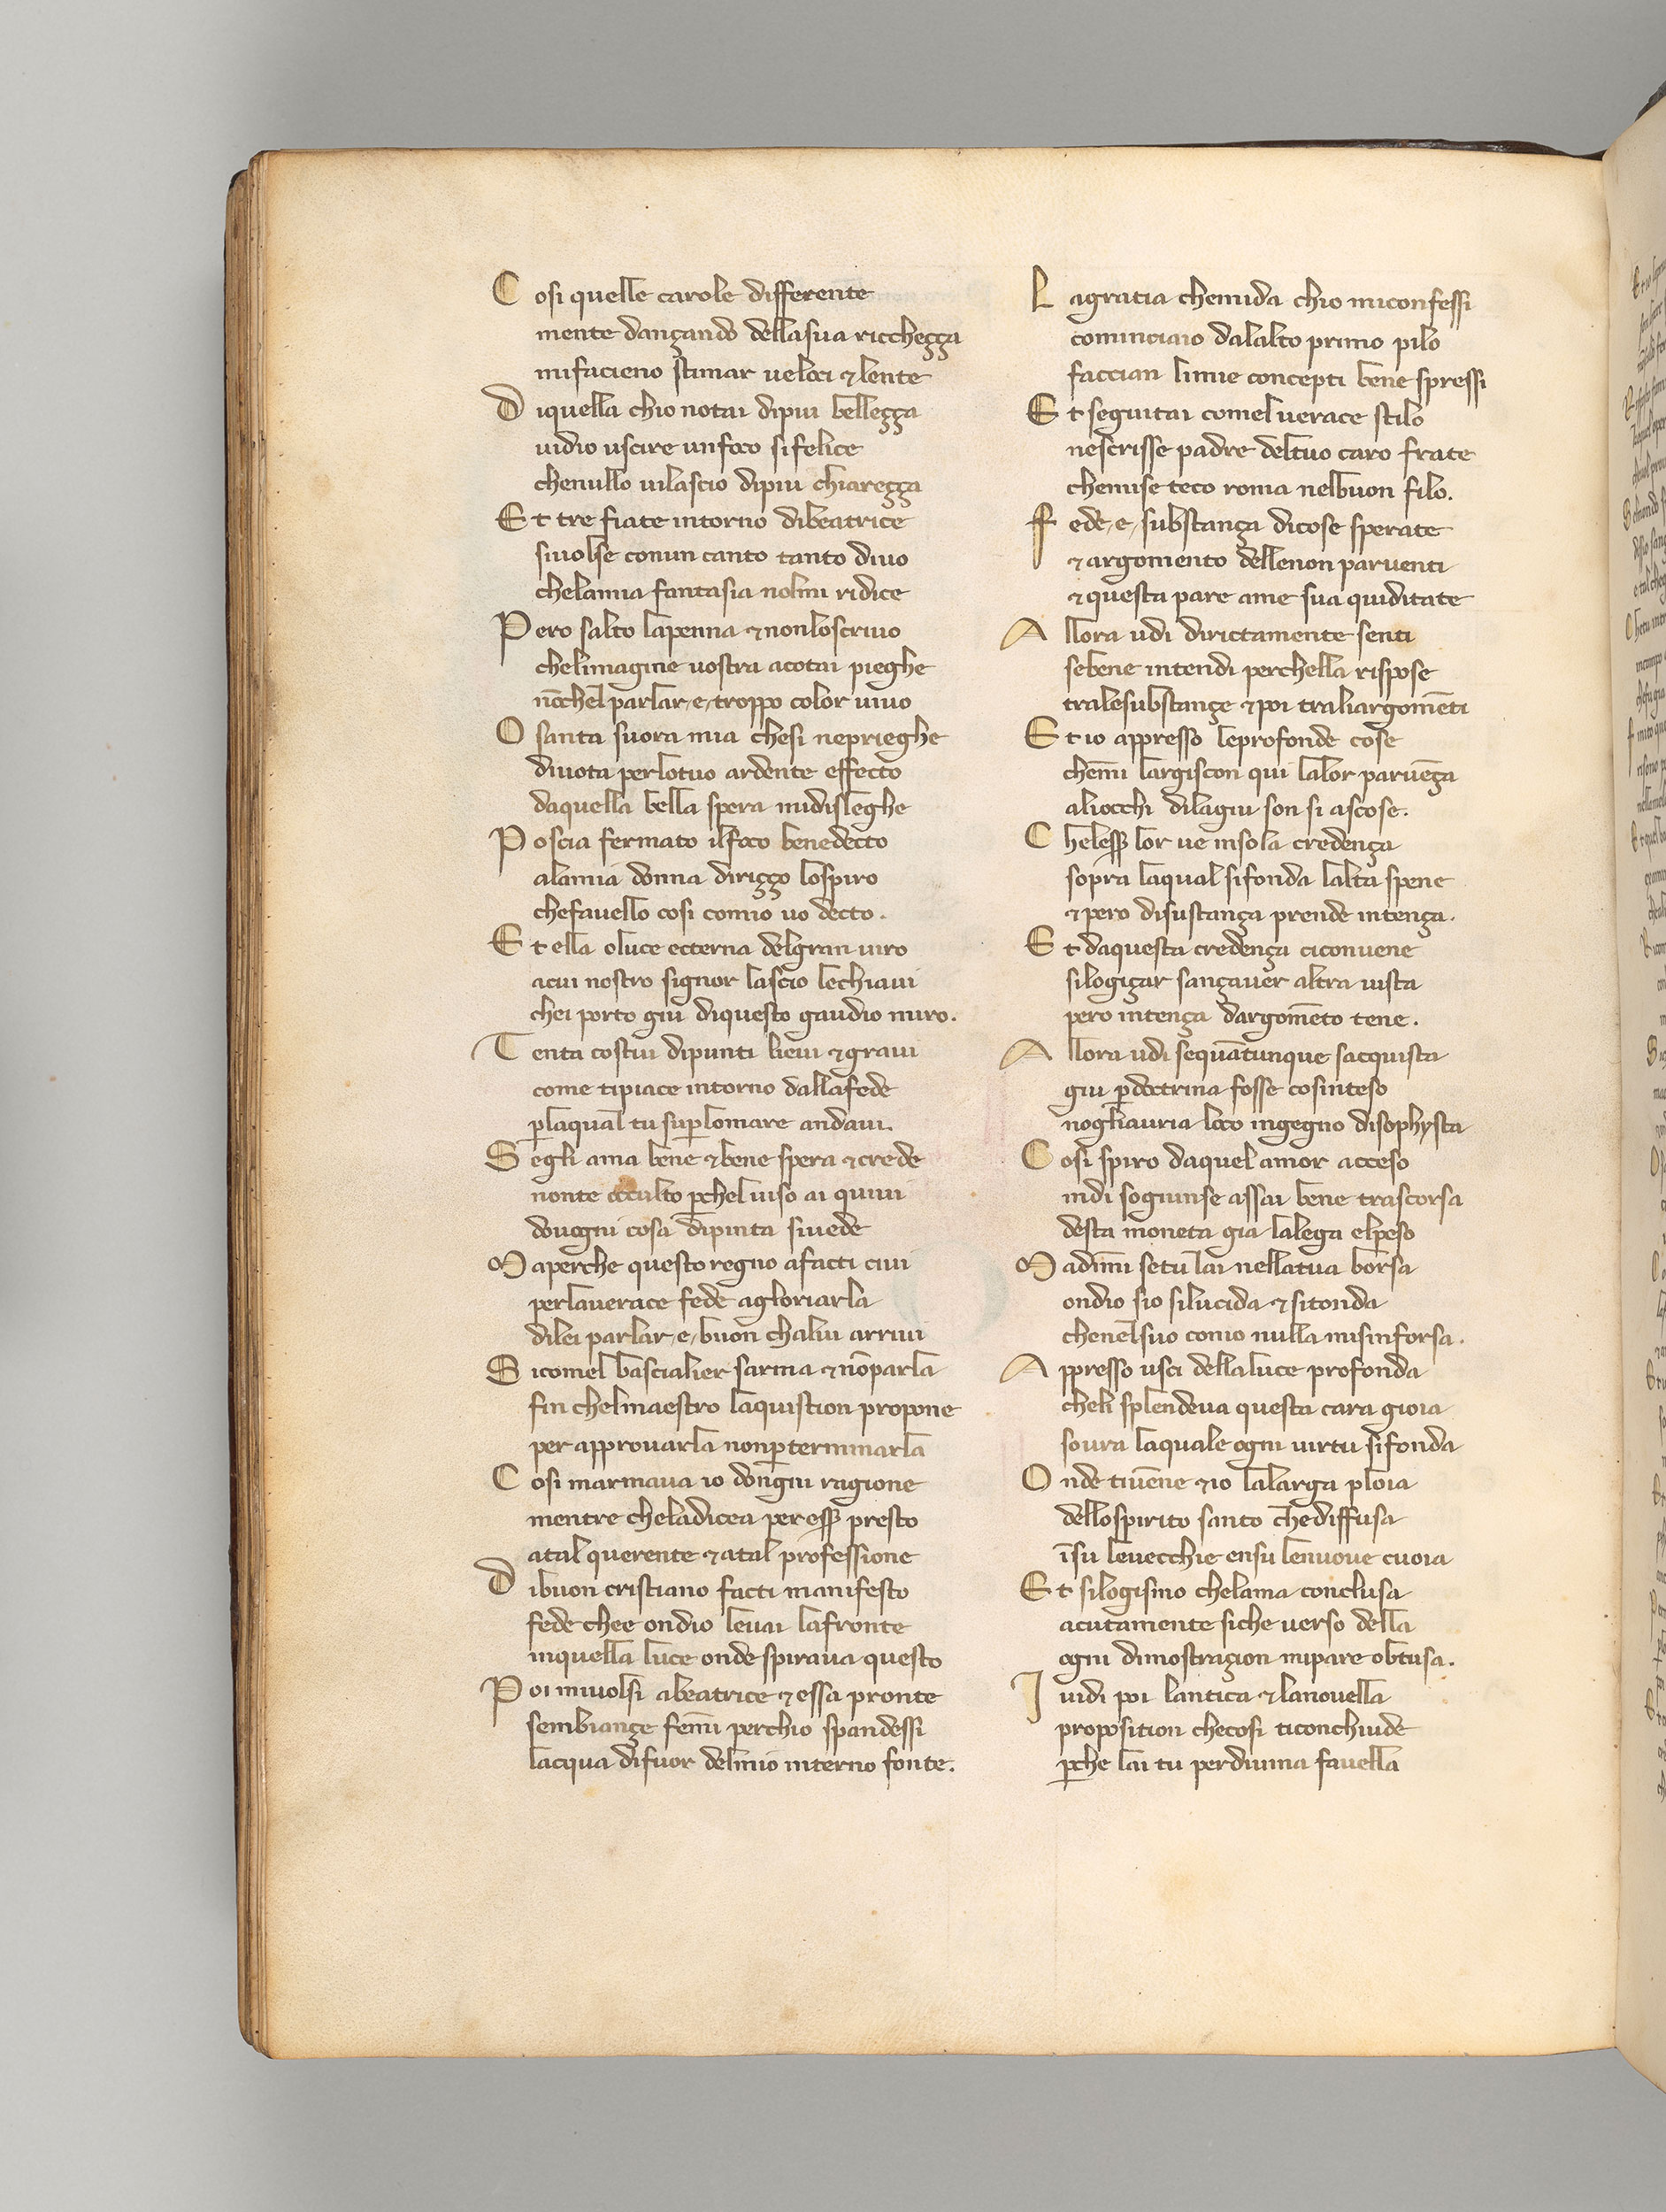 Cosi quelle carole differente
mente dançando dellasua ricchegga
mifacieno stimar veloci ⁊ lente
Diquella chio notai dipiu bellegga
uidio uscire unfoco sifelice
chenullo uilascio dipiu chiaregga
Et tre fiate intorno dibeatrice
siuolse conun canto tanto diuo
chelamia fantasia nolmi ridice
Pero salto lapenna ⁊nonloscriuo
chelimagine nostra acotai pieghe
nōchel parlar·e·troppo color uiuo
O santa suora mia chesi neprieghe
diuota perlotuo ardente effecto
daquella bella spera midisleghe
Poscia fermato ilfoco benedecto
alamia donna diriggo lospiro
chefauello cosi comio uo decto.
Et ella oluce ecterna delgran uiro
acui nostro signor lascio lechiaui
chei porto giu diquesto gaudio miro.
Tenta costui dipunti lieui ⁊graui
come tipiace intorno dallafede
ꝑlaqual tu suꝑlomare andaui.
Segli ama bene ⁊bene spera ⁊crede
nonte occulto ꝑchel uiso ai quiui
douogni cosa dipinta siuede
Maperche questoregno afacti ciui
perlauerace fede agloriarla
dilei parlar·e·buon chalui arriui
Sicomel bascialier sarma ⁊nōparla
fin chelmaestro laquistion propone
per approuarla nonꝑterminarla
Cosi marmaua io dōngni ragione
mentre cheladicea per esſ presto
atal querente ⁊atal professione
Dibuon cristiano facti manifesto
fede chee ondio leuai lafronte
inquella luce onde spiraua questo
Poi miuolsi abeatrice ⁊essa pronte
sembiançe fenmi perchio spandessi
lacqua difuor delmio interno fonte.
Lagratia chemida chio miconfessi
cominciaio dalalto primo pilo
faccian limie concepti bene spressi
Et seguitai comel uerace stilo
nescrisse padre deltuo caro frate
chemise teco roma nelbuon filo.
Fede·e·substança dicose sperate
⁊argomento dellenon paruenti
⁊questa pare ame sua quiditate
Allora udi dirictamente senti
sebene intendi perchella rispose
tralesubstançe ⁊poi traliargomēti
Et io appresso leprofonde cose
chemī largiscon qui lalor paruēça
aliocchi dilagiu son si ascose.
Chelesſ lor ue insola credença
sopra laqual sifonda lalta spene
⁊pero disustança prende intença.
Et daquesta credença ciconuene
silogiçar sançauer altra uista
pero intença dargomēto tene.
Allora udi sequātunque sacquista
giu ꝑdoctrina fosse cosinteso
nogliauria loco ingegno disophysta
Cosi spiro daquel amor acceso
indi sogiunse assai bene trascorsa
desta moneta gia lalega elpeso
Madimī setu lai nellatua borsa
ondio sio silucida ⁊sitonda
chenel suo conio nulla misinforsa.
Appresso usci dellaluce profonda
cheli splendeua questa cara gioia
soura laquale ogni uirtu sifonda
Onde tiuēne ⁊io lalarga ploia
dellospirito santo chediffusa
īsu leuecchie ensu lenuoue cuoia
Et silogismo chelama conclusa
acutamente siche uerso della
ogni dimostraçion mipare obtusa.
Iuidi poi lantica ⁊lanouella
proposition checosi ticonchiude
ꝑche lai tu perdiuina fauella